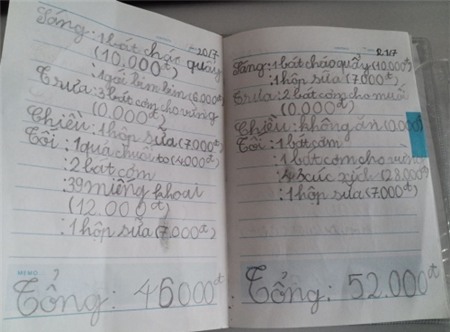 20/7
Sáng: 1 bát cháo quẩy
(10.000đ)
: 1 gói bim bim (6.000đ)
Trưa: 3 bát cơm cho vừng
(0.000đ)
Chiều: 1 hộp sữa (7.000đ)
Tối: 1 quả chuối to (4.000đ)
: 2 bát cơm
: 39 miếng khoai
(12.000đ)
: 1 hộp sữa (7.000đ)
MEMO
Tổng: 46000đ
21/7
Sáng: 1 bát cháo quẩy (10.000đ)
: 1 hộp sữa (7.000đ)
Trưa: 2 bát cơm cho muối
(0.000đ)
Chiều: không ăn (0.000đ)
Tối: 1 bát cơm
: 1 bát cơm cho
: 4 xúc xích (28.000đ)
: 1 hộp sữa (7.000đ)
: Tổng: 52.000đ